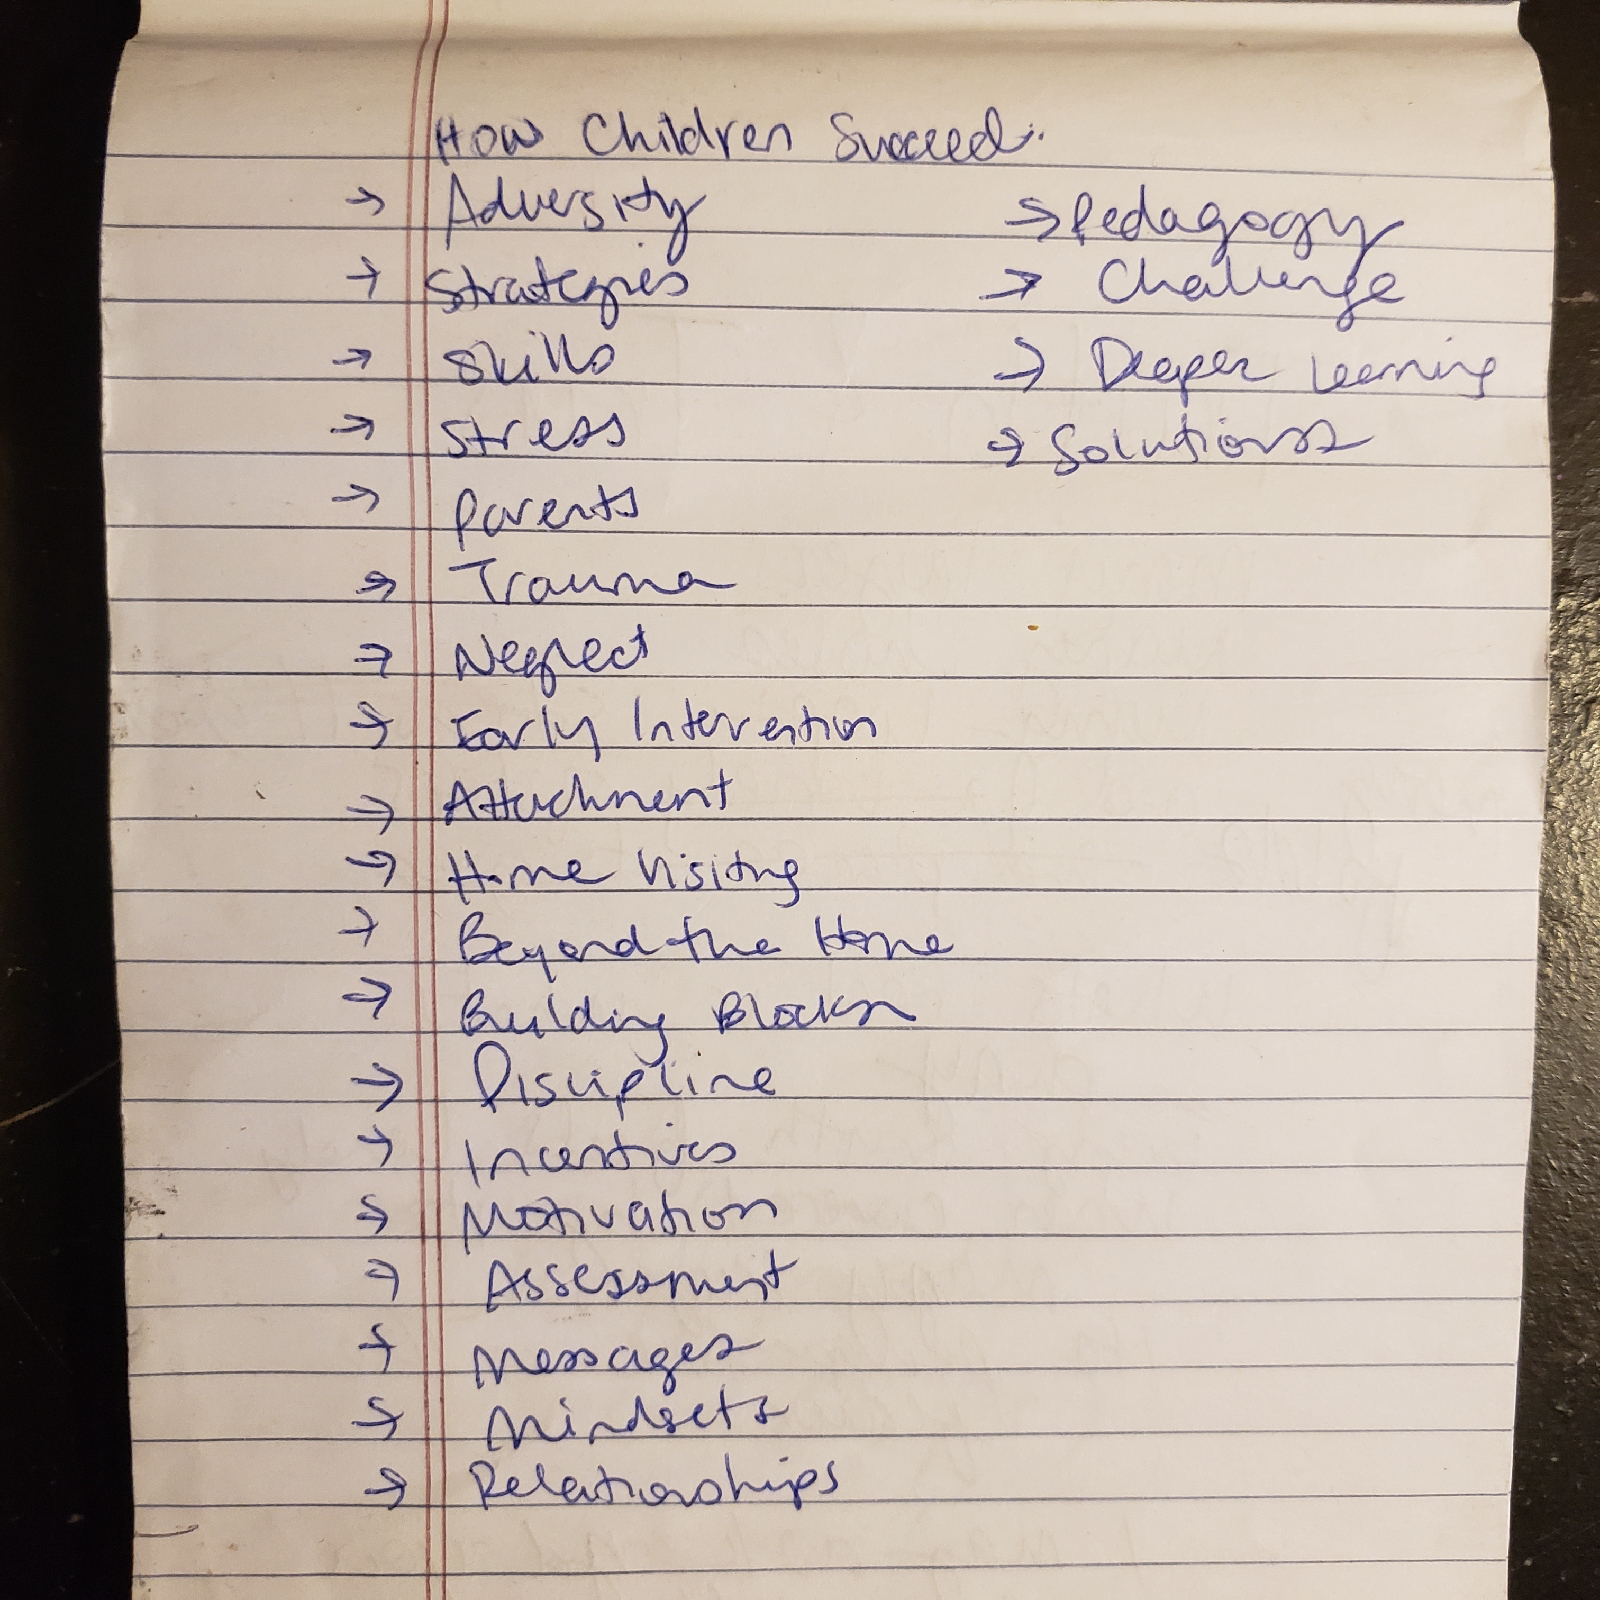 How Children Succeed:
→ Adversity
→ Strategies
→ Skills
→ Stress
→ Parents
→ Trauma
→ Neglect
→ Early Intervention
→ Attachment
→ Home Visiting
→ Beyond the Home
→ Building Blocks
→ Discipline
→ Incentives
→ Motivation
→ Assessment
→ Messages
→ Mindsets
→ Relationships
→ Pedagogy
→ Challenge
→ Deeper Learning
→ Solutions